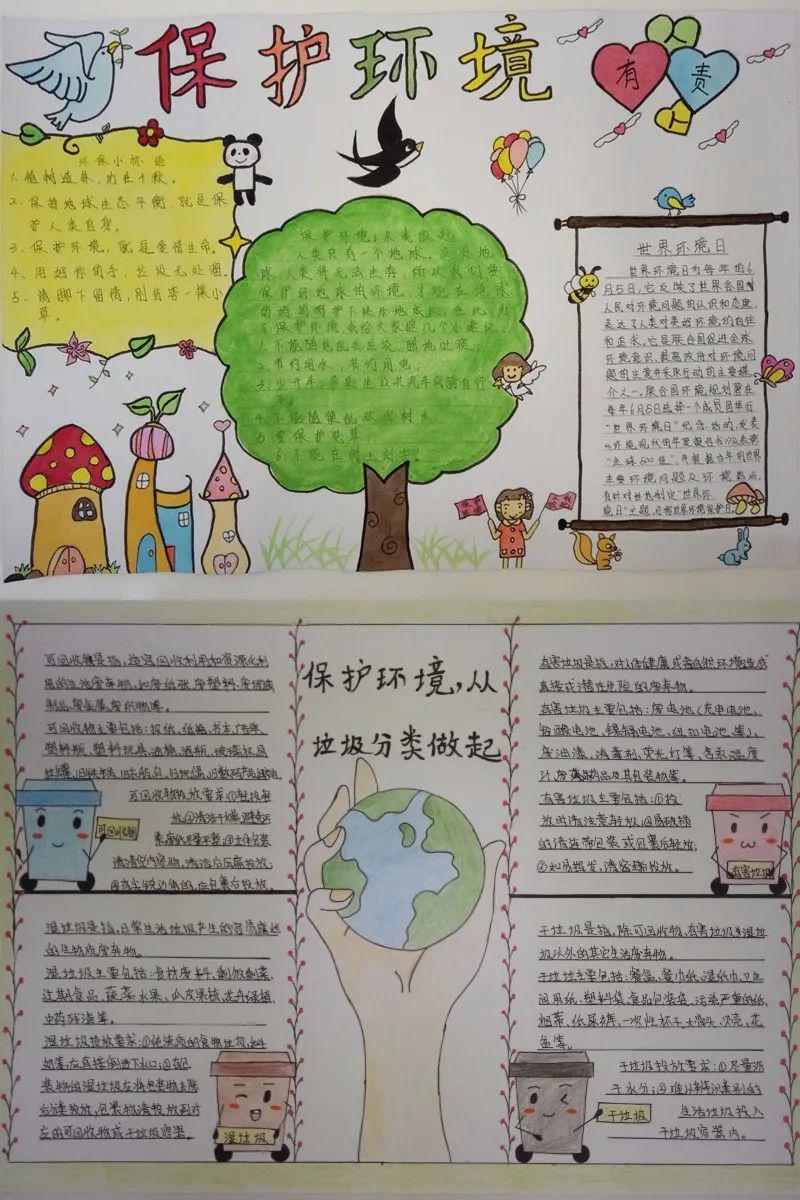 保护环境
有责
环保小标语
1、植树造林，功在千秋。
2、保持地球生态平衡，就是保
护人类自身。
3、保护环境，就是爱惜生命。
4、用好你的手，垃圾无处溜。
5、请脚下留情，别伤害一棵小
草。
保护环境，从我做起
人类只有一个地球。没有地
球，人类将无法生存，所以我们要
保护好地球的环境，才能在地球
了保护环境我给大家提几个小建议：
1.不能随地乱丢垃圾、随地吐痰；
2.节约用水，节约用电；
3.少开车，多乘坐公共汽车或骑自行
车。
4.不能随便乱砍伐树木
5.爱保护花草
6.不能在树上刻字
世界环境日
世界环境日为每年的6
月5日，它反映了世界各国
人民对环境问题的认识和态度，
表达了人类对美好环境的向往
和追求。它是联合国促进全球
环境意识、提高政府对环境问
题的注意并采取行动的主要媒
介之一。联合国环境规划署在
每年6月5日选择一个成员国举行
“世界环境日”纪念活动，发表
《环境现状的年度报告书》及表彰
“全球500佳”，并根据当年的世界
主要环境问题及环境热点，
有针对性地制定“世界环
境日”主题，
保护环境，从
垃圾分类做起
可回收物是指，适宜回收利用和资源化利
用的生活废弃物，如废纸张、废塑料、废玻璃
制品、废金属、废织物等。
可回收物主要包括：报纸、纸箱、书本、广告单、
塑料瓶、塑料玩具、油桶、酒瓶、玻璃杯、易
拉罐、旧铁锅、旧衣服、包、旧玩偶、旧数码产品
可回收物投放要求：①轻投轻
放②清洁干燥，避免污
染，废纸尽量平整；③立体包装
清洁后压扁投放；
④有尖锐边角的，应包裹后投放。
可回收物
有害垃圾是指，对人体健康或者自然环境造成
直接或潜在危险的废弃物。
有害垃圾主要包括：废电池（充电电池、
铅酸电池、镍镉电池、纽扣电池等）、
废油漆、消毒剂、荧光灯管、含汞温度
计、废药品及其包装物等。
有害垃圾主要包括：①投
放时请注意轻放；②易破损
的请连带包装或包裹后轻放；
③如易挥发，请密封后投放。
有害垃圾
湿垃圾是指，日常生活垃圾产生的容易腐烂
的生物质废弃物。
湿垃圾主要包括：食材废料、剩饭剩菜、
过期食品、蔬菜水果、瓜皮果核、花卉绿植、
中药残渣等。
湿垃圾投放要求：①纯流质的食物垃圾，如牛
奶等，应直接倒进下水口；②有包
装物的湿垃圾应将包装物去除
后分类投放，包装物请投放到对
应的可回收物或干垃圾容器。
湿垃圾
干垃圾是指，除可回收物、有害垃圾、湿垃
圾以外的其它生活废弃物。
干垃圾主要包括：餐盒、餐巾纸、湿纸巾、卫生
间用纸、塑料袋、食品包装袋、污染严重的纸、
烟蒂、纸尿裤、一次性杯子、大骨头、贝壳、花
盆等。
干垃圾投放要求：①尽量沥
干水分；②难以辨识类别的
生活垃圾投入
干垃圾容器内。
干垃圾